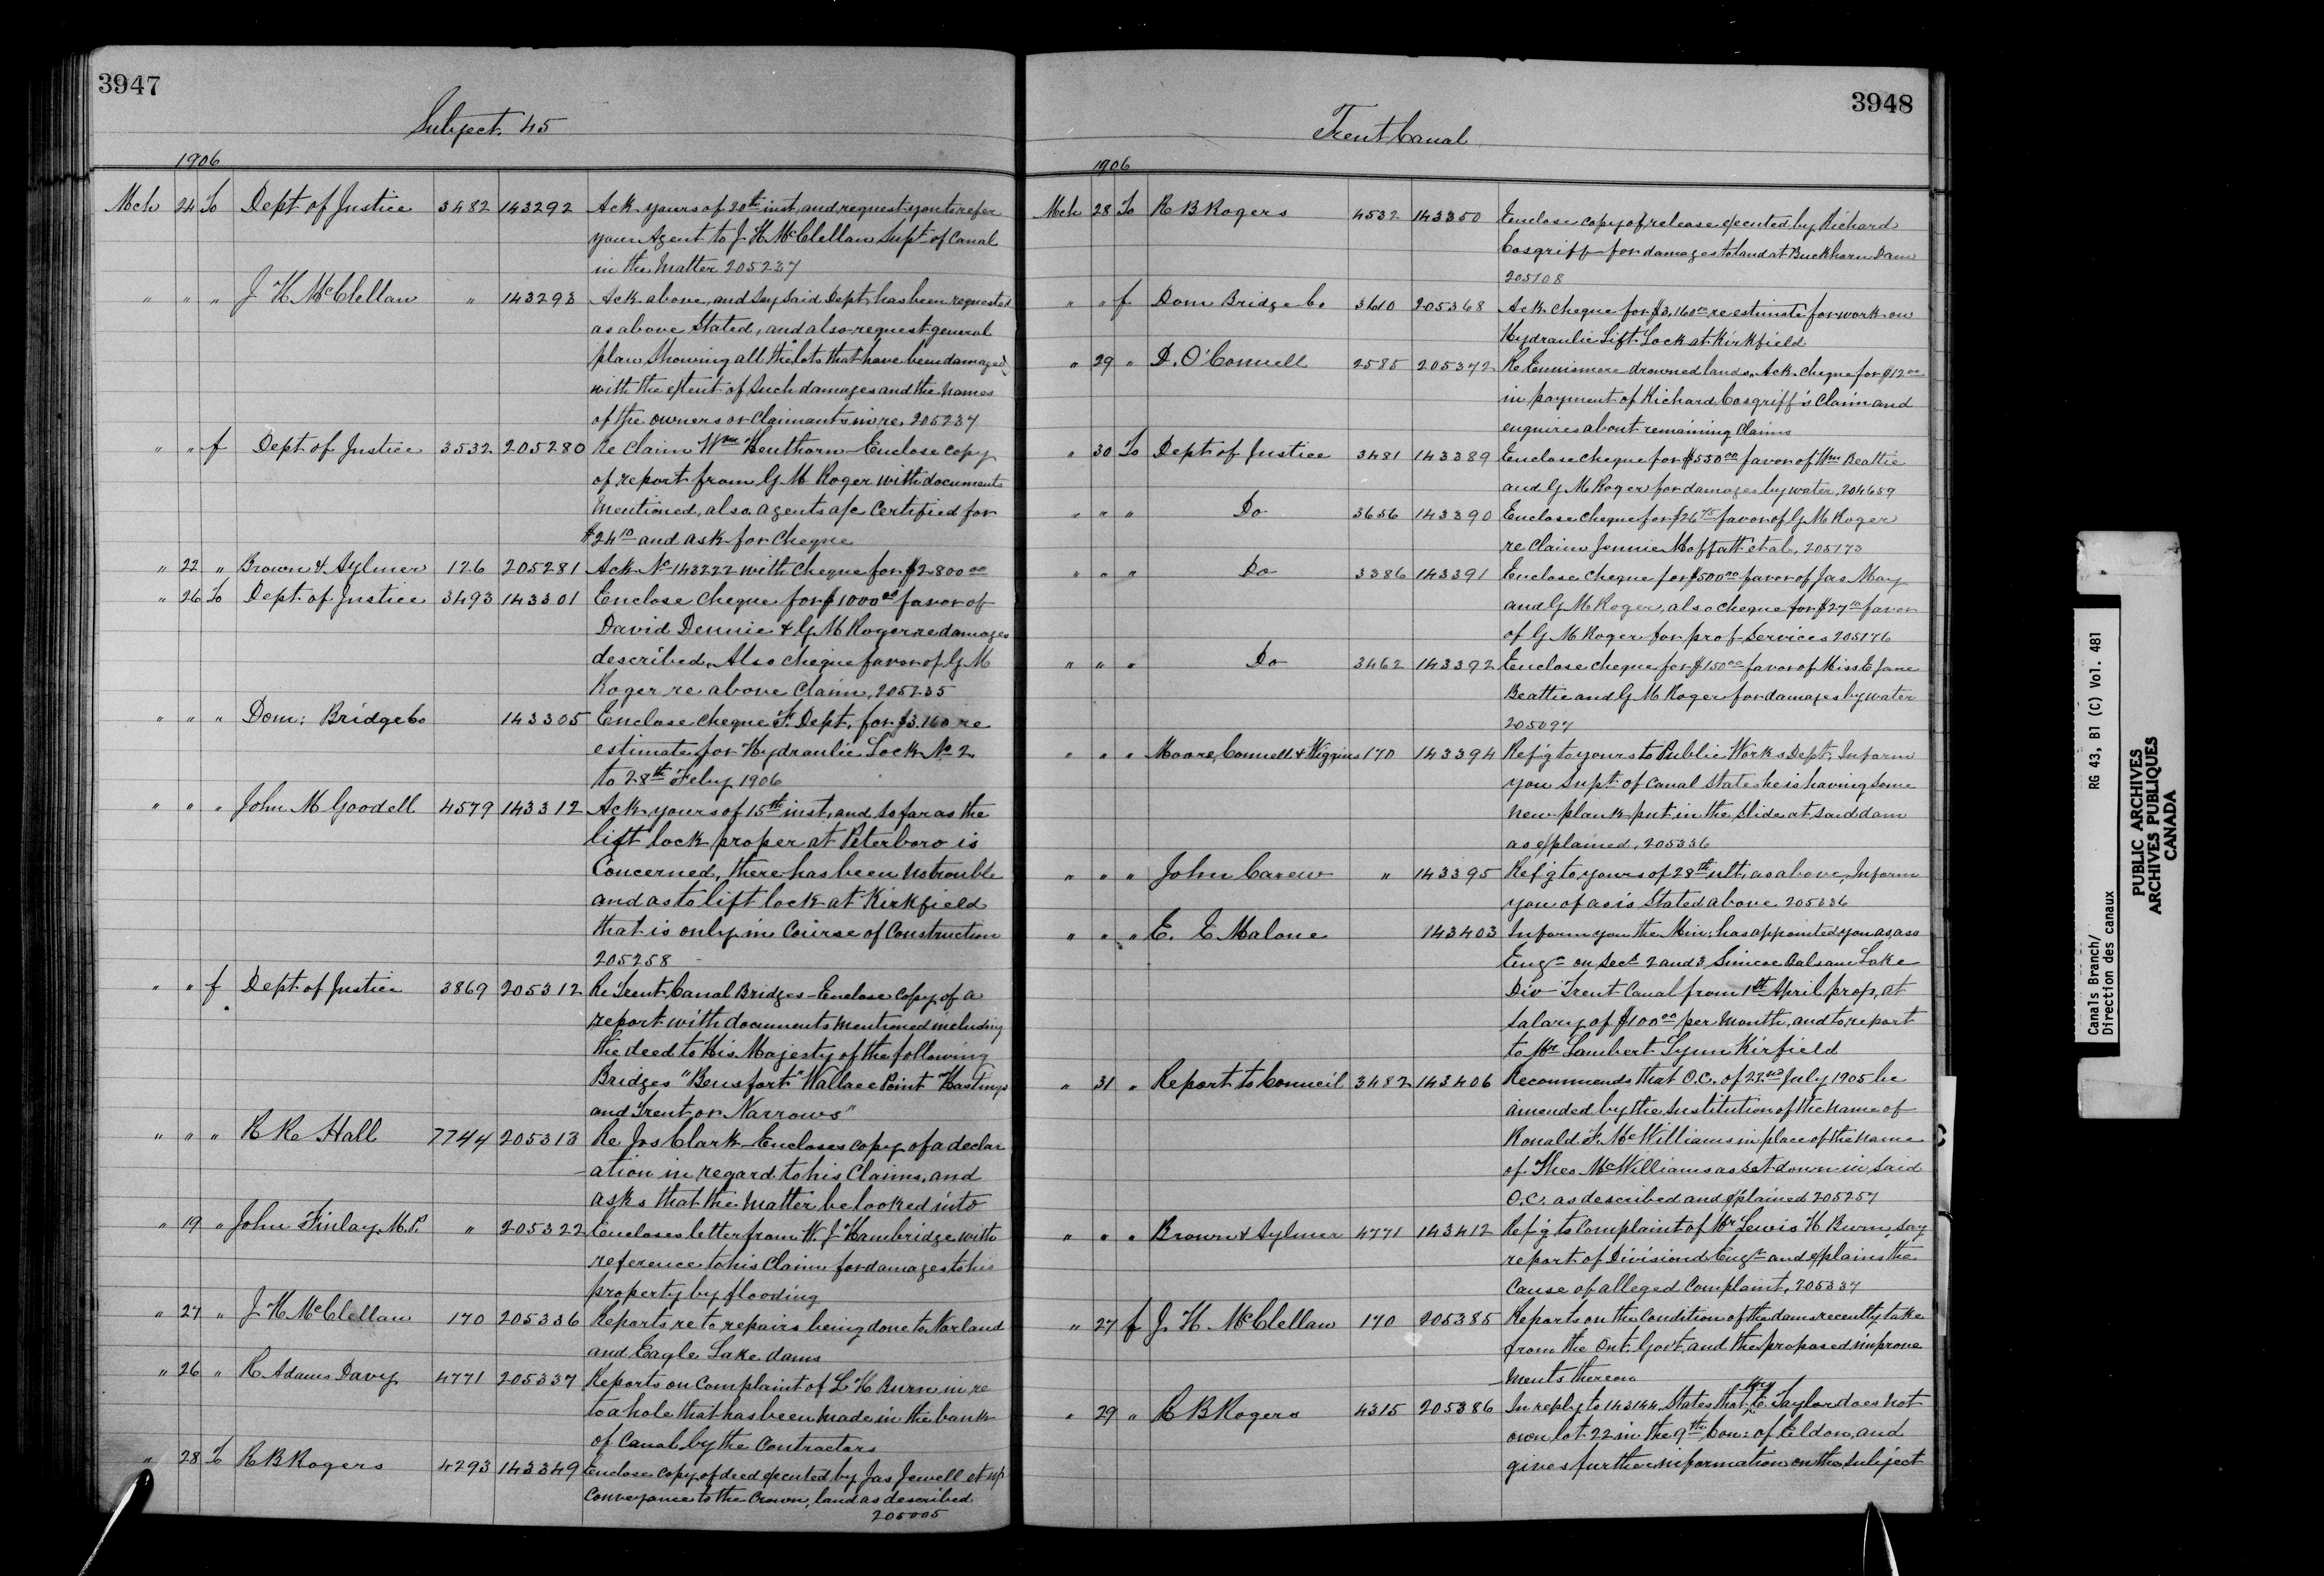 3947
Subject 45
1906
Mch 24 To Dept of Justice 3482 143292 Ack yours of 20th inst, and request you to refer
your Agent to J H McClellan Supt of Canal
in the matter 205237
" " " J H McClellan " 143293 Ack above, and say said Dept, has been requested
as above stated, and also request general
plan showing all the lots that have been damaged
with the extent of such damages and the names
of the owners or claimants in re 205237
" " f Dept of Justice 3532 205280 Re Claim Wm Henthorn - Enclose copy
of report from G M Roger with documents
mentioned, also agents a/c certified for
$24 10 and ask for cheque
" 22 " Brown & Aylmer 126 205281 Ack No 143222 with cheque for $2800 00
" 26 To Dept of Justice 3493 143301 Enclose cheque for $1000 00 favor of
David Dennie & G M Roger re damages
described. Also cheque favor of G M
Roger re above claim, 205235
" " " Dom: Bridge Co 143305 Enclose cheque F. Dept. for $3.160 re
estimate for Hydraulic Lock No 2
to 28th Feby 1906
" " " John M Goodell 4579 143312 Ack yours of 15th inst, and so far as the
lift lock proper at Peterboro is
concerned, there has been no trouble
and as to lift lock at Kirkfield
that is only in course of construction
205258
" " f Dept of Justice 3869 205312 Re Trent Canal Bridges - Enclose copy of a
report with documents mentioned including
the deed to His Majesty of the following
Bridges "Bensfort" Wallace Point "Hastings
and Trent or Narrows"
" " " R R Hall 7744 205313 Re Jos Clark - Encloses copy of a declar
-ation in regard to his claims, and
asks that the matter be looked into
" 19 " John Finlay M.P. " 205322 Encloses letter from W. J Hambridge with
reference to his claim for damages to his
property by flooding
" 27 " J H McClellan 170 205336 Reports re to repairs being done to Norland
and Eagle Lake dams
" 26 " R Adams Davy 4771 205337 Reports on complaint of L H Burn in re
to a hole that has been made in the bank
of Canal by the Contractors
" 28 To R B Rogers 4293 143349 Enclose copy of deed executed by Jas Jewell et up
conveyance to the Crown, land as described
205005
3948
Trent Canal
1906
Mch 28 To R B Rogers 4532 143350 Enclose copy of release executed by Richard
Cosgriff for damages to land at Buckhorn Dam
205108
" " f Dom Bridge Co 3610 205368 Ack cheque for $3,160 00 re estimate for work on
Hydraulic Lift Lock at Kirkfield
" 29 " D. O'Connell 2585 205342 Re Ennismore drowned lands. Ack cheque for $12 00
in payment of Richard Cosgriff's claim and
enquires about remaining claims
" 30 To Dept of Justice 3481 143389 Enclose cheque for $550 00 favor of Wm Beattie
and G M Roger for damages by water, 204659
" " " Do 3656 143390 Enclose cheque for $26 75 favor of G M Roger
re claim Jennie Moffatt et al, 205173
" " " Do 3386 143391 Enclose cheque for $500 00 favor of Jas May
and G M Roger, also cheque for $27 10 favor
of G M Roger for prof services 205176
" " " Do 3462 143392 Enclose cheque for $150 00 favor of Miss E Jane
Beattie and G M Roger for damages by water
205097
" " " Moore, Connell & Wiggins 170 143394 Ref'g to yours to Public Works Dept, Inform
you Supt of Canal states he is having some
new plank put in the slide at said dam
as explained, 205336
" " " John Carew " 143395 Ref'g to yours of 28th ult, as above, Inform
you of as is stated above 205336
" " " E. E Malone 143403 Inform you the Min: has appointed you as, ass
Engr on Sect 2 and 3, Simcoe Balsam Lake
Div - Trent Canal from 1st April prox, at
salary of $100 00 per month, and to report
to Mr Lambert Lynn Kirfield
" 31 " Report to Council 3482 143406 Recommends that O.C. of 23rd July 1905 be
amended by the Institution of the name of
Ronald F. McWilliams in place of the name
of Theo McWilliams as set down in said
O.C. as described and explained 205257
" " " Brown & Aylmer 4771 143412 Ref'g to complaint of Mr Lewis H Burn, say
report of Divisiond Engr and explains the
cause of alleged complaint, 205337
" 27 f J. H. McClellan 170 205385 Reports on the condition of the dams recently take
from the Ont. Govt. and the proposed improve
ments thereon
" 29 " R B Rogers 4315 205386 In reply to 143144, States that Mrs E. Taylor does not
own lot 22 in the 9th Con: of Eldon, and
gives further information on the subject
Canals Branch/
Direction des canaux
RG 43, B1 (C) Vol. 481
PUBLIC ARCHIVES
ARCHIVES PUBLIQUES
CANADA